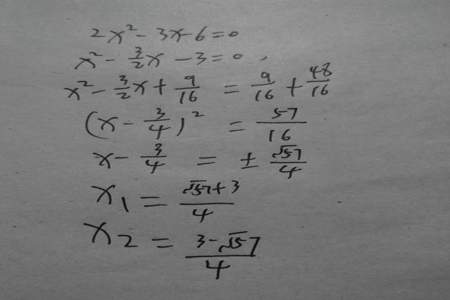 2x² - 3x - 6 = 0
x² - 3/2 x - 3 = 0,
x² - 3/2 x + 9/16 = 9/16 + 48/16
(x - 3/4)² = 57/16
x - 3/4 = ± √57/4
x₁ = (√57 + 3)/4
x₂ = (3 - √57)/4